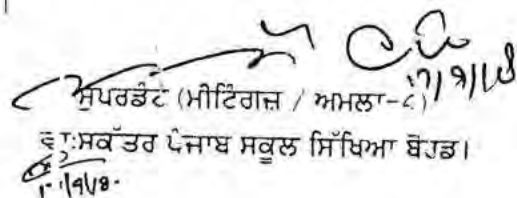 17/9/18
ਸੁਪਰਡੰਟ (ਮੀਟਿੰਗਜ਼ / ਅਮਲਾ-੮)
ਵਾ:ਸਕੱਤਰ ਪੰਜਾਬ ਸਕੂਲ ਸਿੱਖਿਆ ਬੋਰਡ।